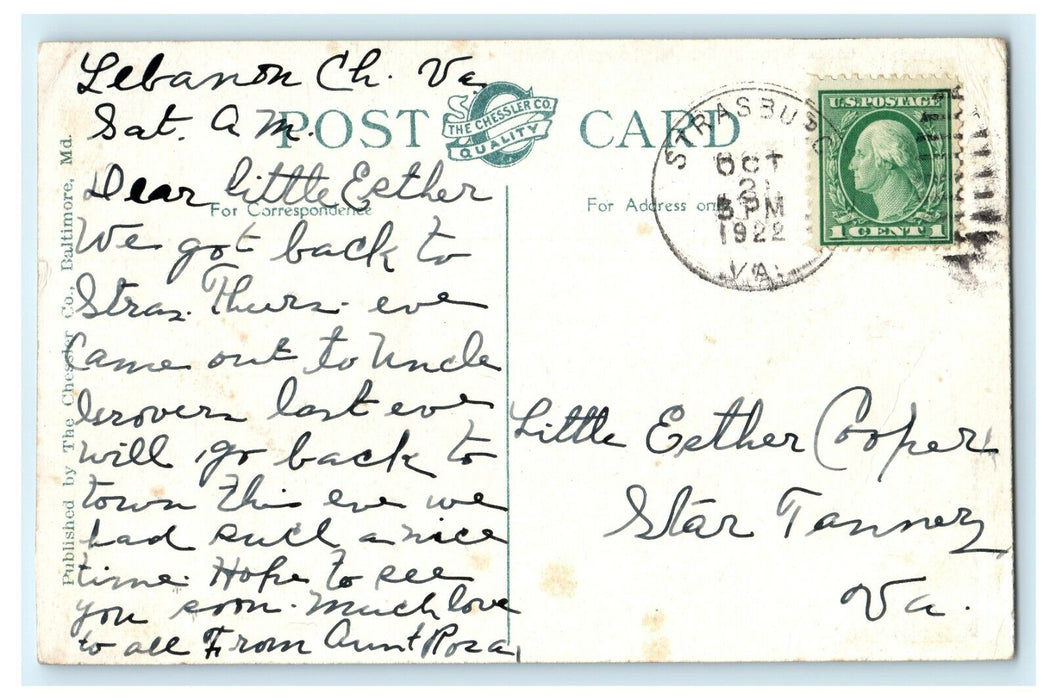 Lebanon Ch. Va
Sat. A.M.
POST CARD
THE CHESSLER CO.
QUALITY
Dear little Esther
For Correspondence
We got back to
Stras. Thurs. eve
Came out to Uncle
Grovers last eve
will go back to
town this eve we
had such a nice
time. Hope to see
you soon. Much love
to all From Aunt Rosa
Published by The Chessler Co., Baltimore, Md.
For Address only
STRASBURG
OCT
21
3 PM
1922
VA.
U.S. POSTAGE
1 CENT 1
Little Esther Cooper
Star Tannery
Va.